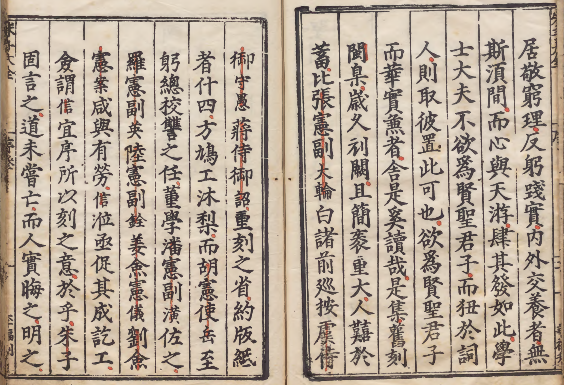 居敬窮理反躬踐實内外交養者無
斯須間而心與天游肆其發如此學
士大夫不欲為賢聖君子而狃於詞
人則取彼置此可也欲為賢聖君子
而華實兼者舍是奚讀哉是集舊刻
閩臬歲久刓闕且簡袠重大人囏於
蓄比張憲副大輪白諸前巡按虞侍
御守愚蔣侍御詔重刻之省約版紙
者什四方鳩工沐梨而胡憲使岳至
躬總校讐之任董學潘憲副潢佐之
羅憲副英陸憲副銓姜僉憲儀劉僉
憲案咸與有勞信涖亟促其成訖工
僉謂信宜序所以刻之意於乎朱子
固言之道未嘗亡而人實晦之明之